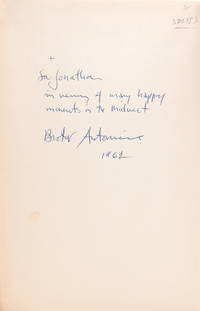 +
for Jonathan
in memory of many happy
moments in the midwest
Brother Antoninus
1962